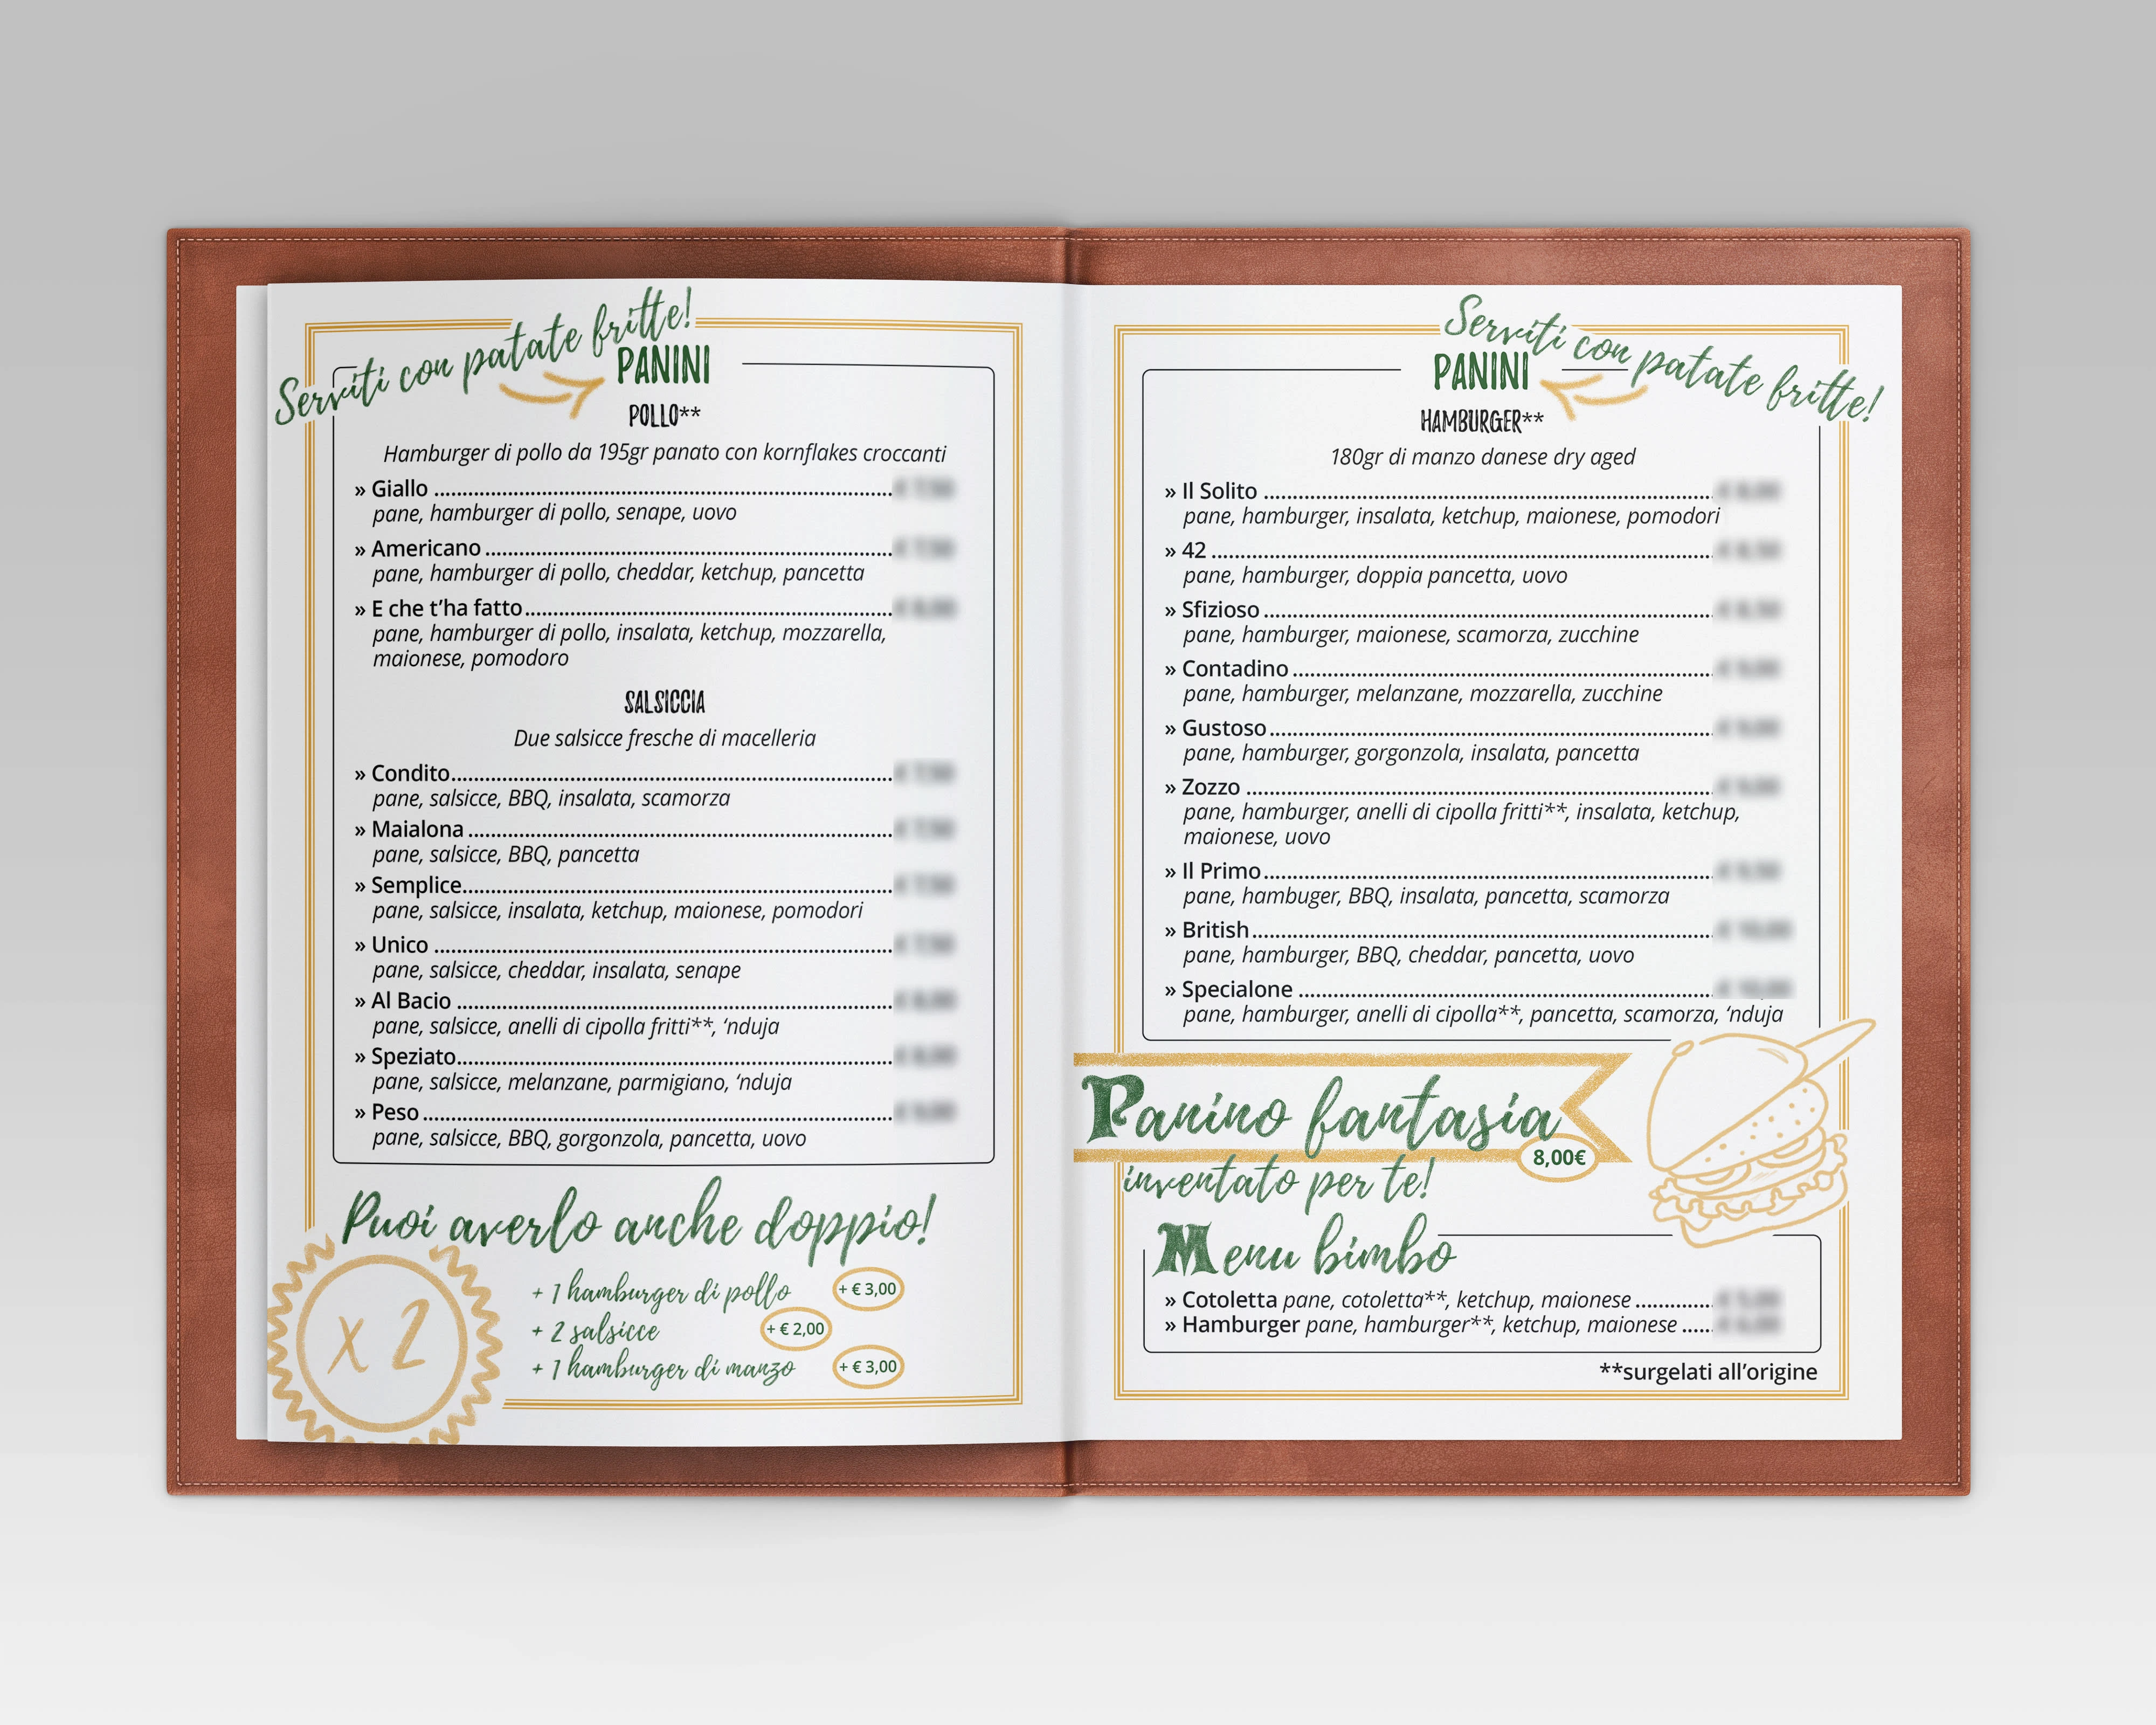 Serviti con patate fritte!
PANINI
POLLO**
Hamburger di pollo da 195gr panato con kornflakes croccanti
» Giallo
pane, hamburger di pollo, senape, uovo
» Americano
pane, hamburger di pollo, cheddar, ketchup, pancetta
» E che t’ha fatto
pane, hamburger di pollo, insalata, ketchup, mozzarella,
maionese, pomodoro
SALSICCIA
Due salsicce fresche di macelleria
» Condito
pane, salsicce, BBQ, insalata, scamorza
» Maialona
pane, salsicce, BBQ, pancetta
» Semplice
pane, salsicce, insalata, ketchup, maionese, pomodori
» Unico
pane, salsicce, cheddar, insalata, senape
» Al Bacio
pane, salsicce, anelli di cipolla fritti**, ‘nduja
» Speziato
pane, salsicce, melanzane, parmigiano, ‘nduja
» Peso
pane, salsicce, BBQ, gorgonzola, pancetta, uovo
Puoi averlo anche doppio!
x 2
+ 1 hamburger di pollo + € 3,00
+ 2 salsicce + € 2,00
+ 1 hamburger di manzo + € 3,00
Serviti con patate fritte!
PANINI
HAMBURGER**
180gr di manzo danese dry aged
» Il Solito
pane, hamburger, insalata, ketchup, maionese, pomodori
» 42
pane, hamburger, doppia pancetta, uovo
» Sfizioso
pane, hamburger, maionese, scamorza, zucchine
» Contadino
pane, hamburger, melanzane, mozzarella, zucchine
» Gustoso
pane, hamburger, gorgonzola, insalata, pancetta
» Zozzo
pane, hamburger, anelli di cipolla fritti**, insalata, ketchup,
maionese, uovo
» Il Primo
pane, hambuger, BBQ, insalata, pancetta, scamorza
» British
pane, hamburger, BBQ, cheddar, pancetta, uovo
» Specialone
pane, hamburger, anelli di cipolla**, pancetta, scamorza, ‘nduja
Panino fantasia
8,00€
inventato per te!
Menu bimbo
» Cotoletta pane, cotoletta**, ketchup, maionese
» Hamburger pane, hamburger**, ketchup, maionese
**surgelati all’origine